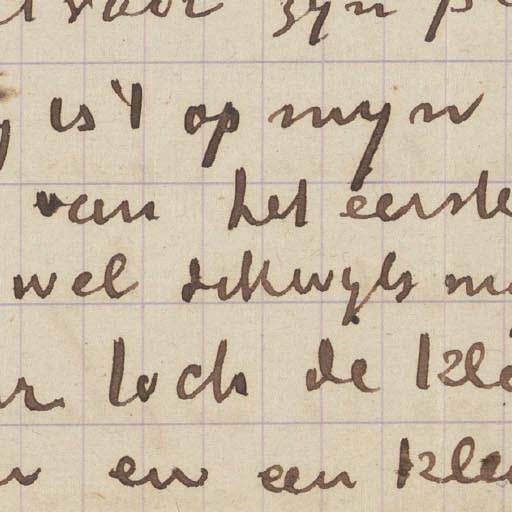 voor zyn
is't op myn
van het eerste
wel dikwyls
toch de kle
en een kle